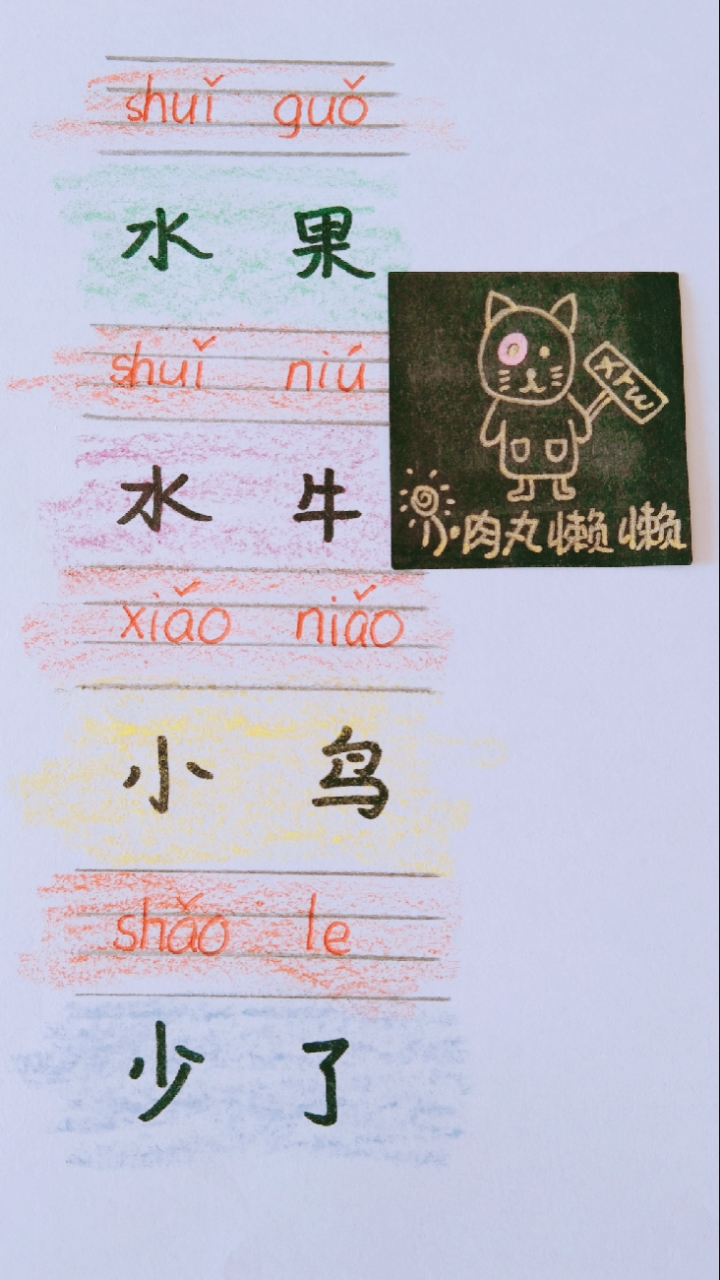 shuǐ guǒ
水 果
shuǐ niú
水 牛
xrw
小肉丸懒懒
xiǎo niǎo
小 鸟
shǎo le
少 了